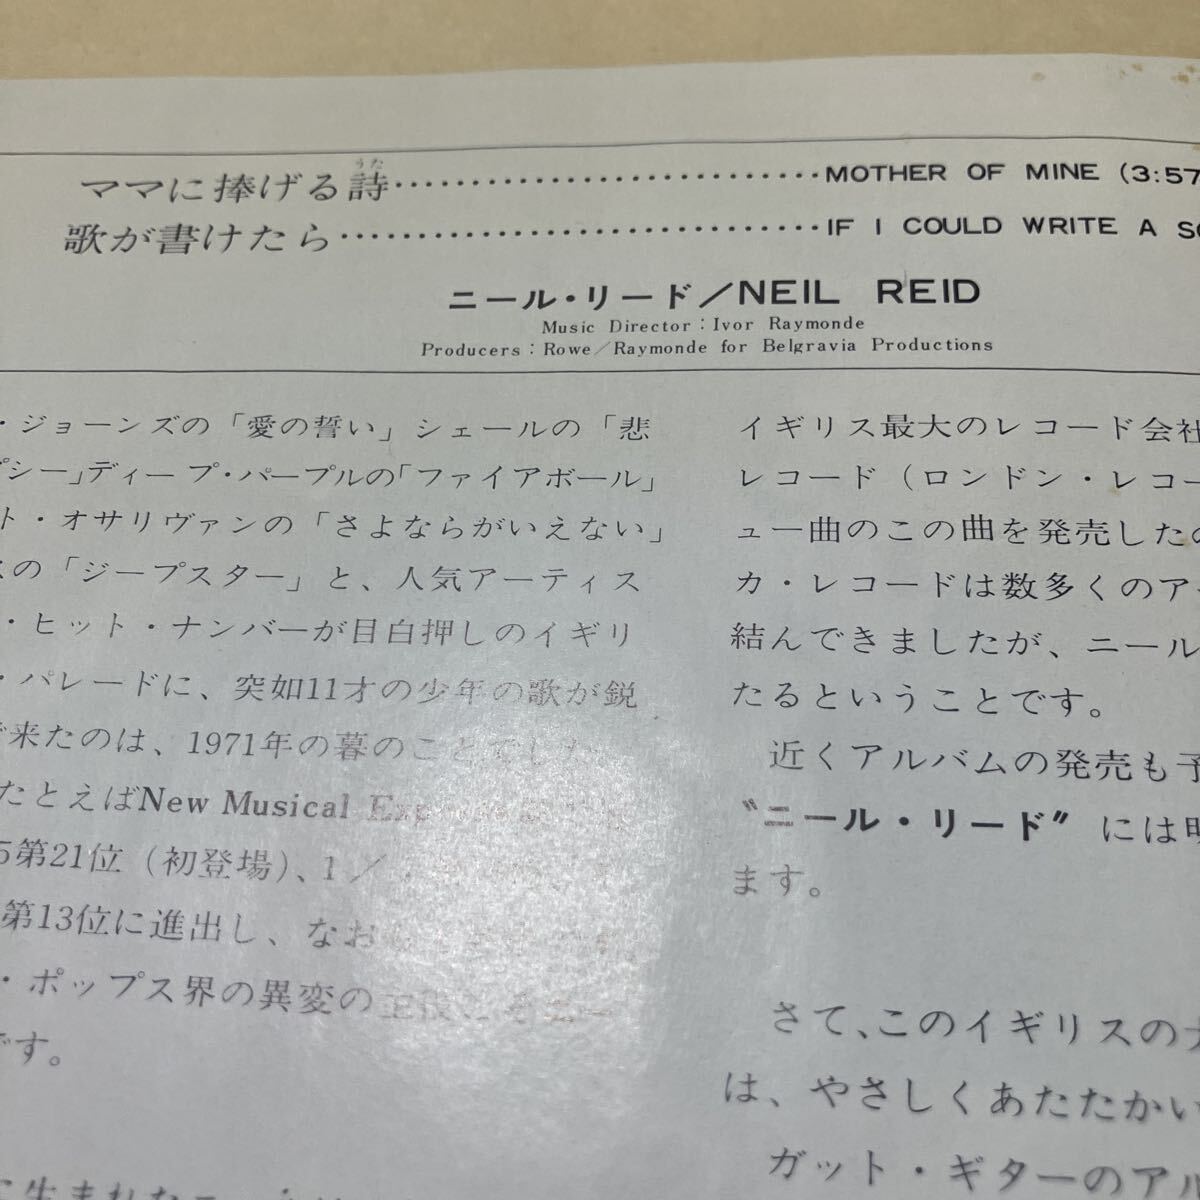 ママに捧げる詩‥‥‥‥‥‥‥‥‥‥MOTHER OF MINE (3:57
うた
歌が書けたら‥‥‥‥‥‥‥‥‥‥‥IF I COULD WRITE A SO
ニール・リード／NEIL REID
Music Director：Ivor Raymonde
Producers：Rowe／Raymonde for Belgravia Productions
・ジョーンズの「愛の誓い」シェールの「悲
プシー」ディープ・パープルの「ファイアボール」
ト・オサリヴァンの「さよならがいえない」
スの「ジープスター」と、人気アーティス
・ヒット・ナンバーが目白押しのイギリ
・パレードに、突如11才の少年の歌が鋭
で来たのは、1971年の暮のことでした
たとえばNew Musical
5第21位（初登場）、1／
第13位に進出し、なお
・ポップス界の異変の
です。
に生まれた
イギリス最大のレコード会社
レコード（ロンドン・レコー
ュー曲のこの曲を発売したの
カ・レコードは数多くのア
結んできましたが、ニール
たるということです。
近くアルバムの発売も予
〝ニール・リード〟には
ます。
さて、このイギリスの
は、やさしくあたたかい
ガット・ギターのアル